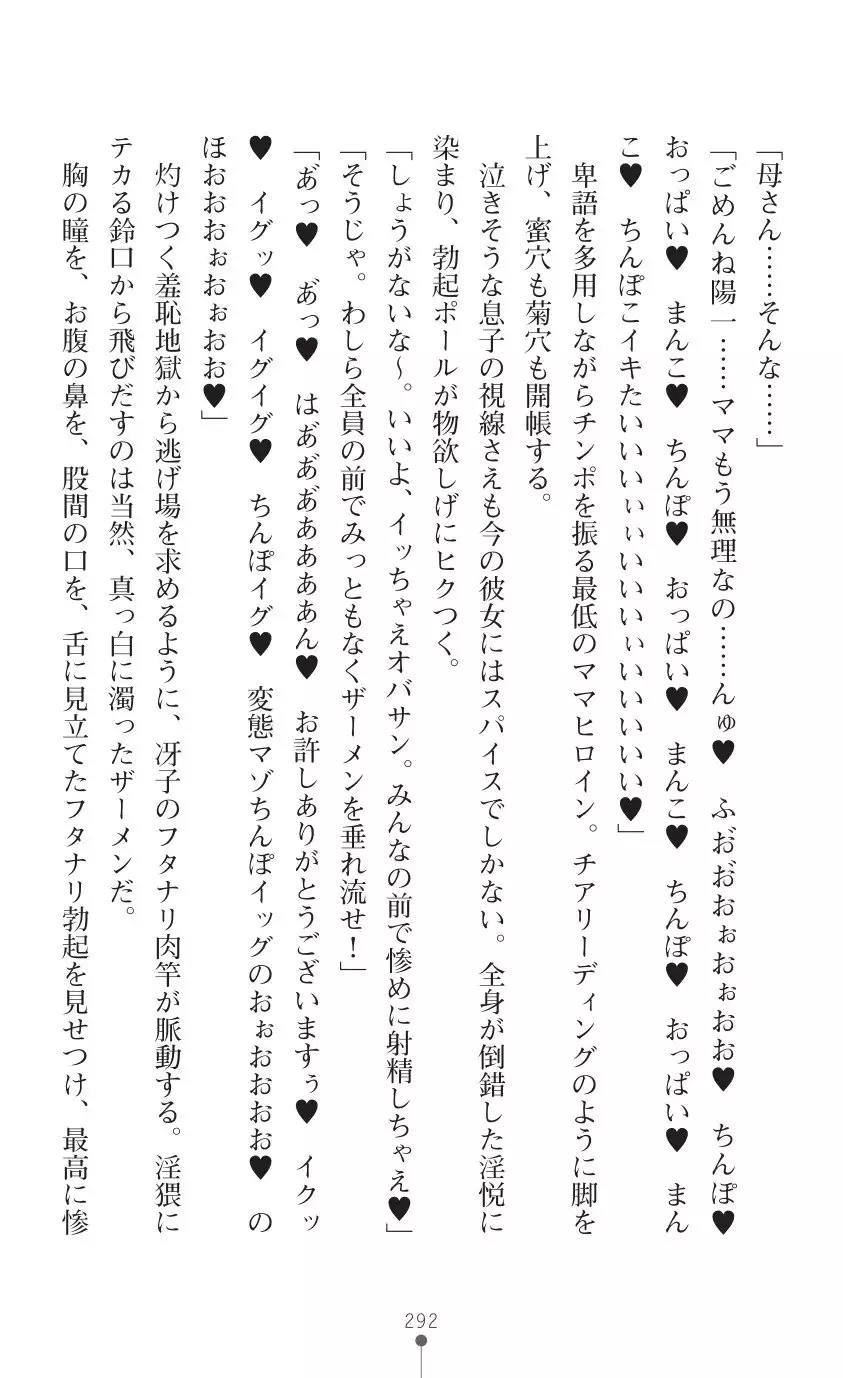 「母さん……そんな……」
「ごめんね陽一……ママもう無理なの……んゅ♥　ふお゙お゙おぉおぉおお♥　ちんぽ♥
おっぱい♥　まんこ♥　ちんぽ♥　おっぱい♥　まんこ♥　ちんぽ♥　おっぱい♥　まん
こ♥　ちんぽこイキたいいいぃぃいいいいぃいいいいい♥」
　卑語を多用しながらチンポを振る最低のママヒロイン。チアリーディングのように脚を
上げ、蜜穴も菊穴も開帳する。
　泣きそうな息子の視線さえも今の彼女にはスパイスでしかない。全身が倒錯した淫悦に
染まり、勃起ポールが物欲しげにヒクつく。
「しょうがないな～。いいよ、イッちゃえオバサン。みんなの前で惨めに射精しちゃえ♥」
「そうじゃ。わしら全員の前でみっともなくザーメンを垂れ流せ！」
「あ゙っ♥　あ゙っ♥　はあ゙あ゙あ゙ああああん♥　お許しありがとうございますぅ♥　イクッ
♥　イグッ♥　イグイグ♥　ちんぽイグ♥　変態マゾちんぽイッグのおぉおおおお♥　の
ほおおおぉおぉおお♥」
　灼けつく羞恥地獄から逃げ場を求めるように、冴子のフタナリ肉竿が脈動する。淫猥に
テカる鈴口から飛びだすのは当然、真っ白に濁ったザーメンだ。
　胸の瞳を、お腹の鼻を、股間の口を、舌に見立てたフタナリ勃起を見せつけ、最高に惨
292